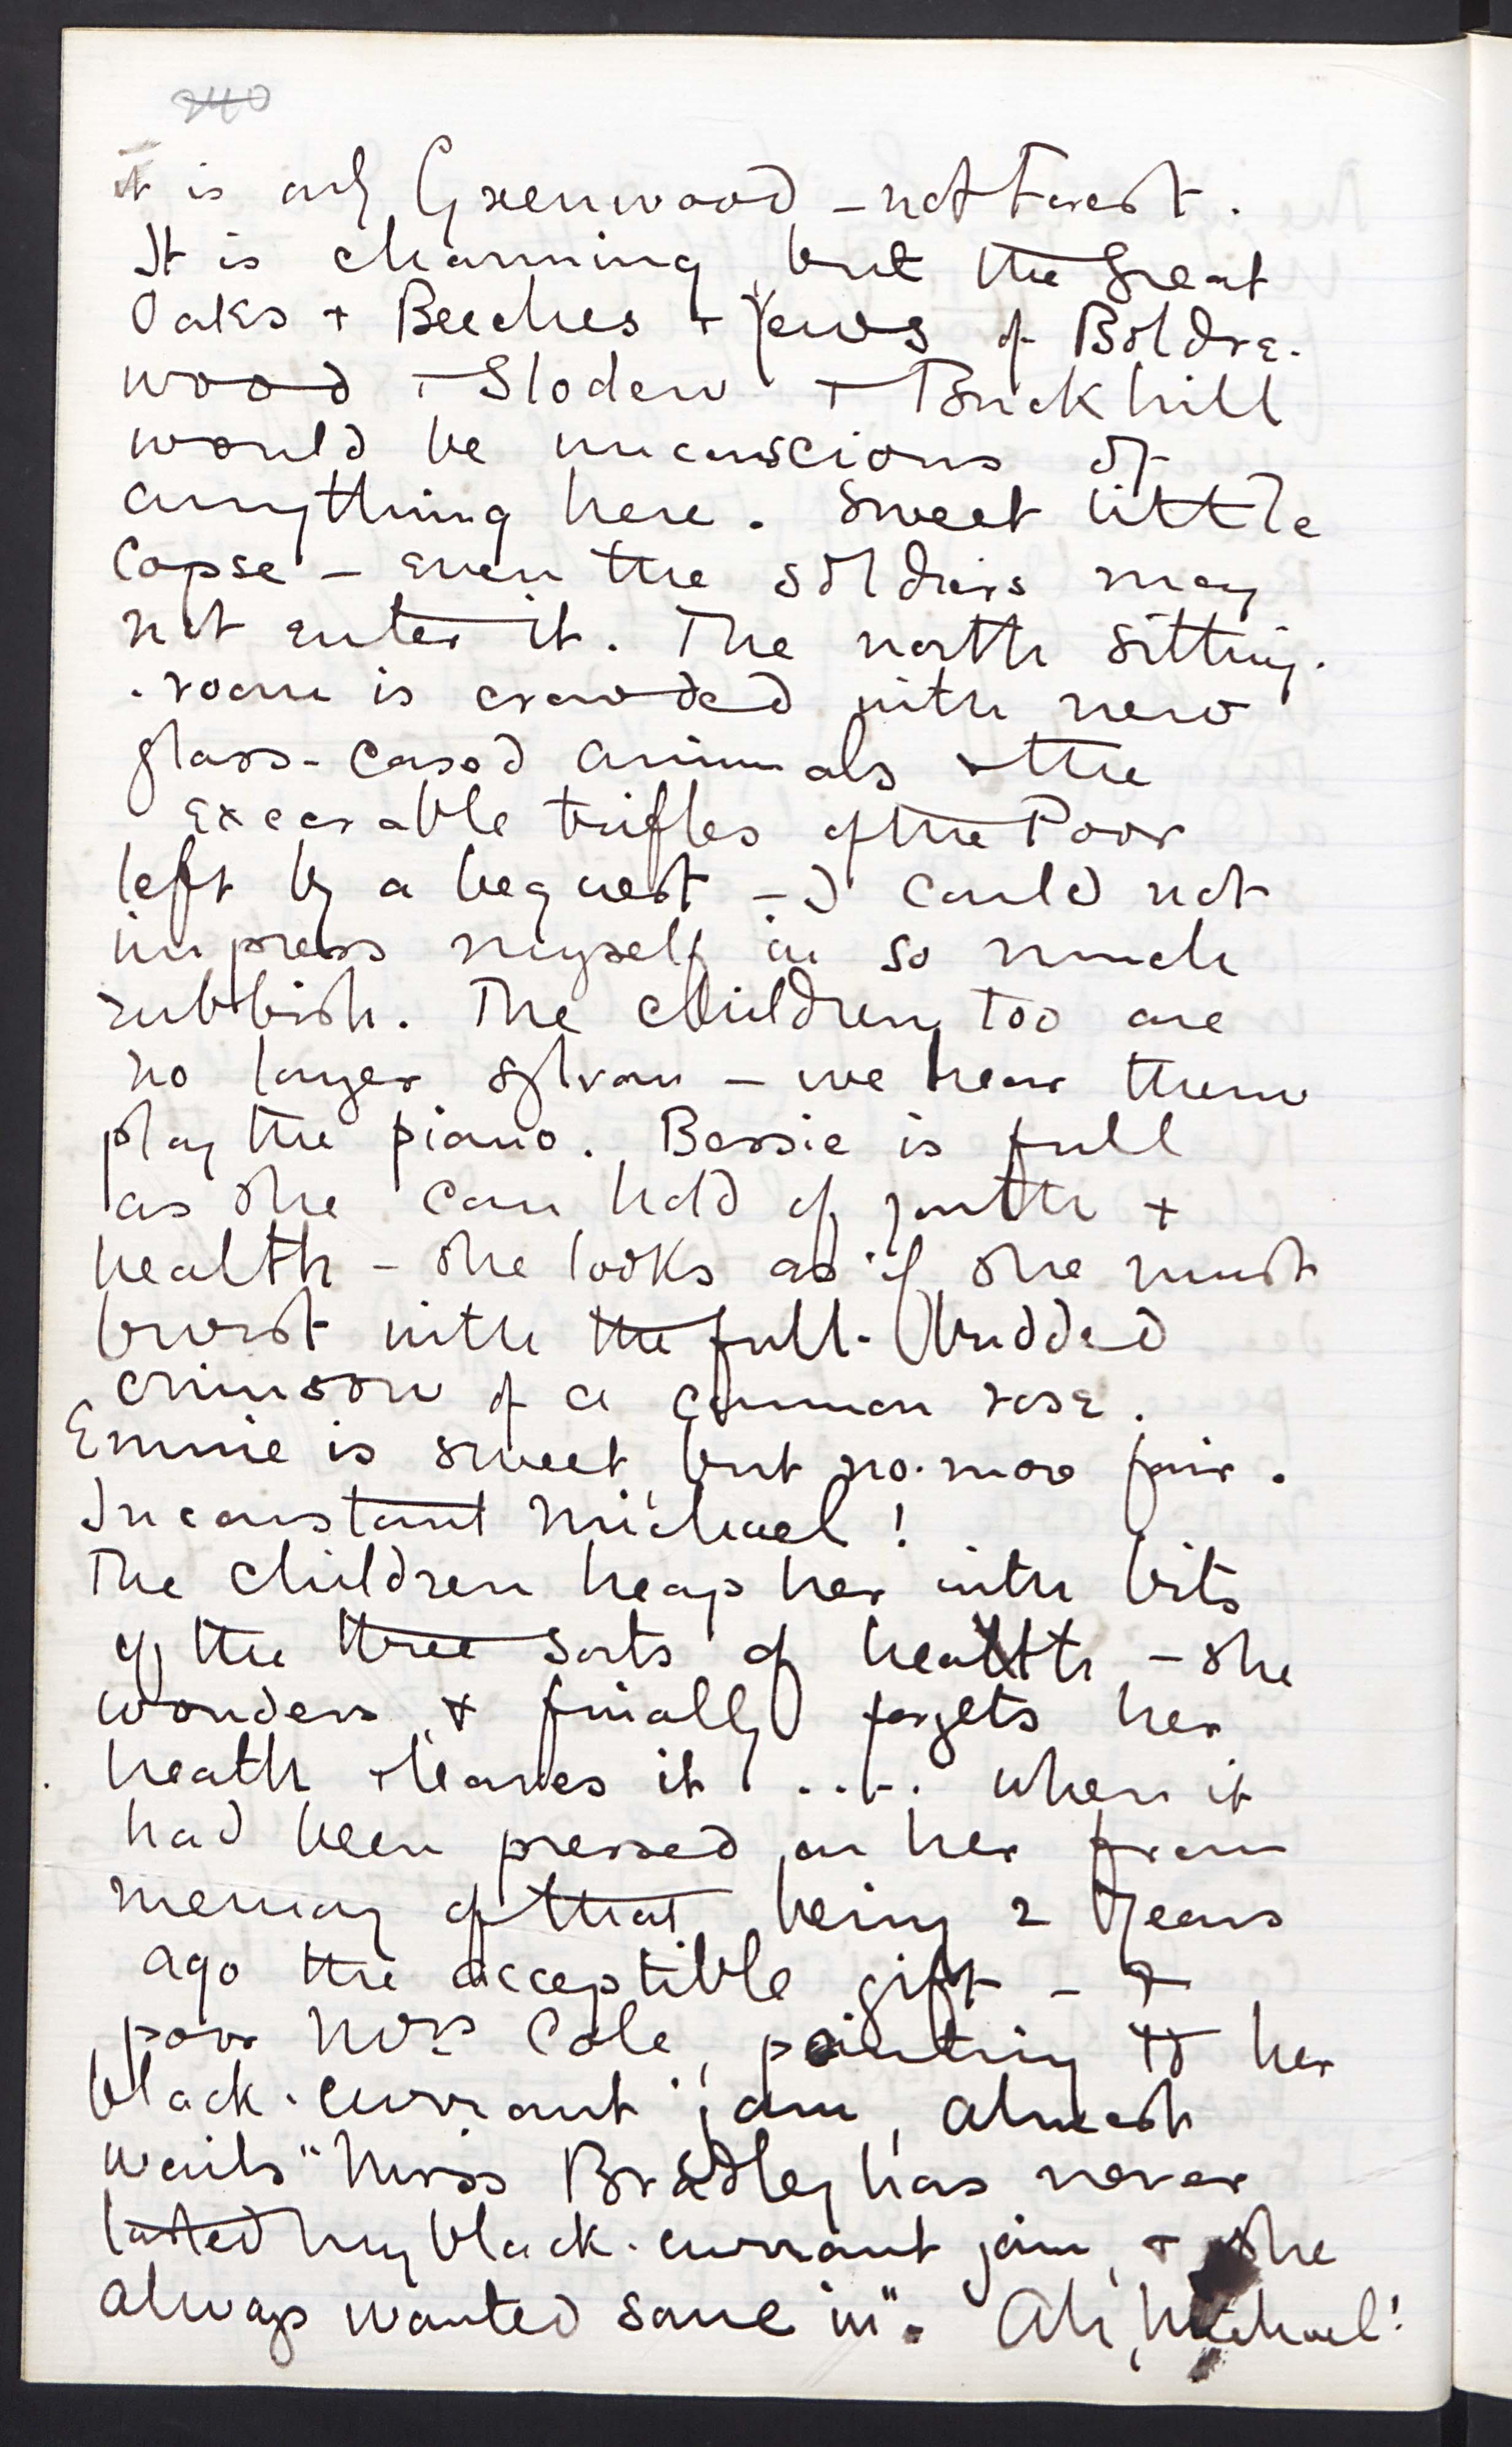 240
it is only Greenwood - not Forest.
It is charming, but the Great
Oaks + Beeches + Yews of Boldre-
wood + Sloden + Buckhill
would be unconscious of
anything here. Sweet little
Copse - even the soldiers may
not enter it. The north sitting-
-room is crowded with new
glass-cased animals + the
execrable trifles of the Poor
left by a bequest - I could not
impress myself in so much
rubbish. The children, too are
no longer sylvan - we hear them
play the piano. Bessie is full
as she can hold of youth +
health - she looks as if she must
burst with the full-budded
crimson of a common rose.
Emmie is sweet, but no-more fair.
Inconstant Michael!
The children heap her with bits
of the three sorts of heath - she
wonders, + finally forgets her
heath + leaves it .... when it
had been pressed on her from
memory of that being 2 years
ago the acceptible gift - +
poor Mrs Cole, pointing to her
black-currant jam, almost
wails "Miss Bradley has never
tasted my black-currant jam, + she
always wanted some in". Ah, Michael!